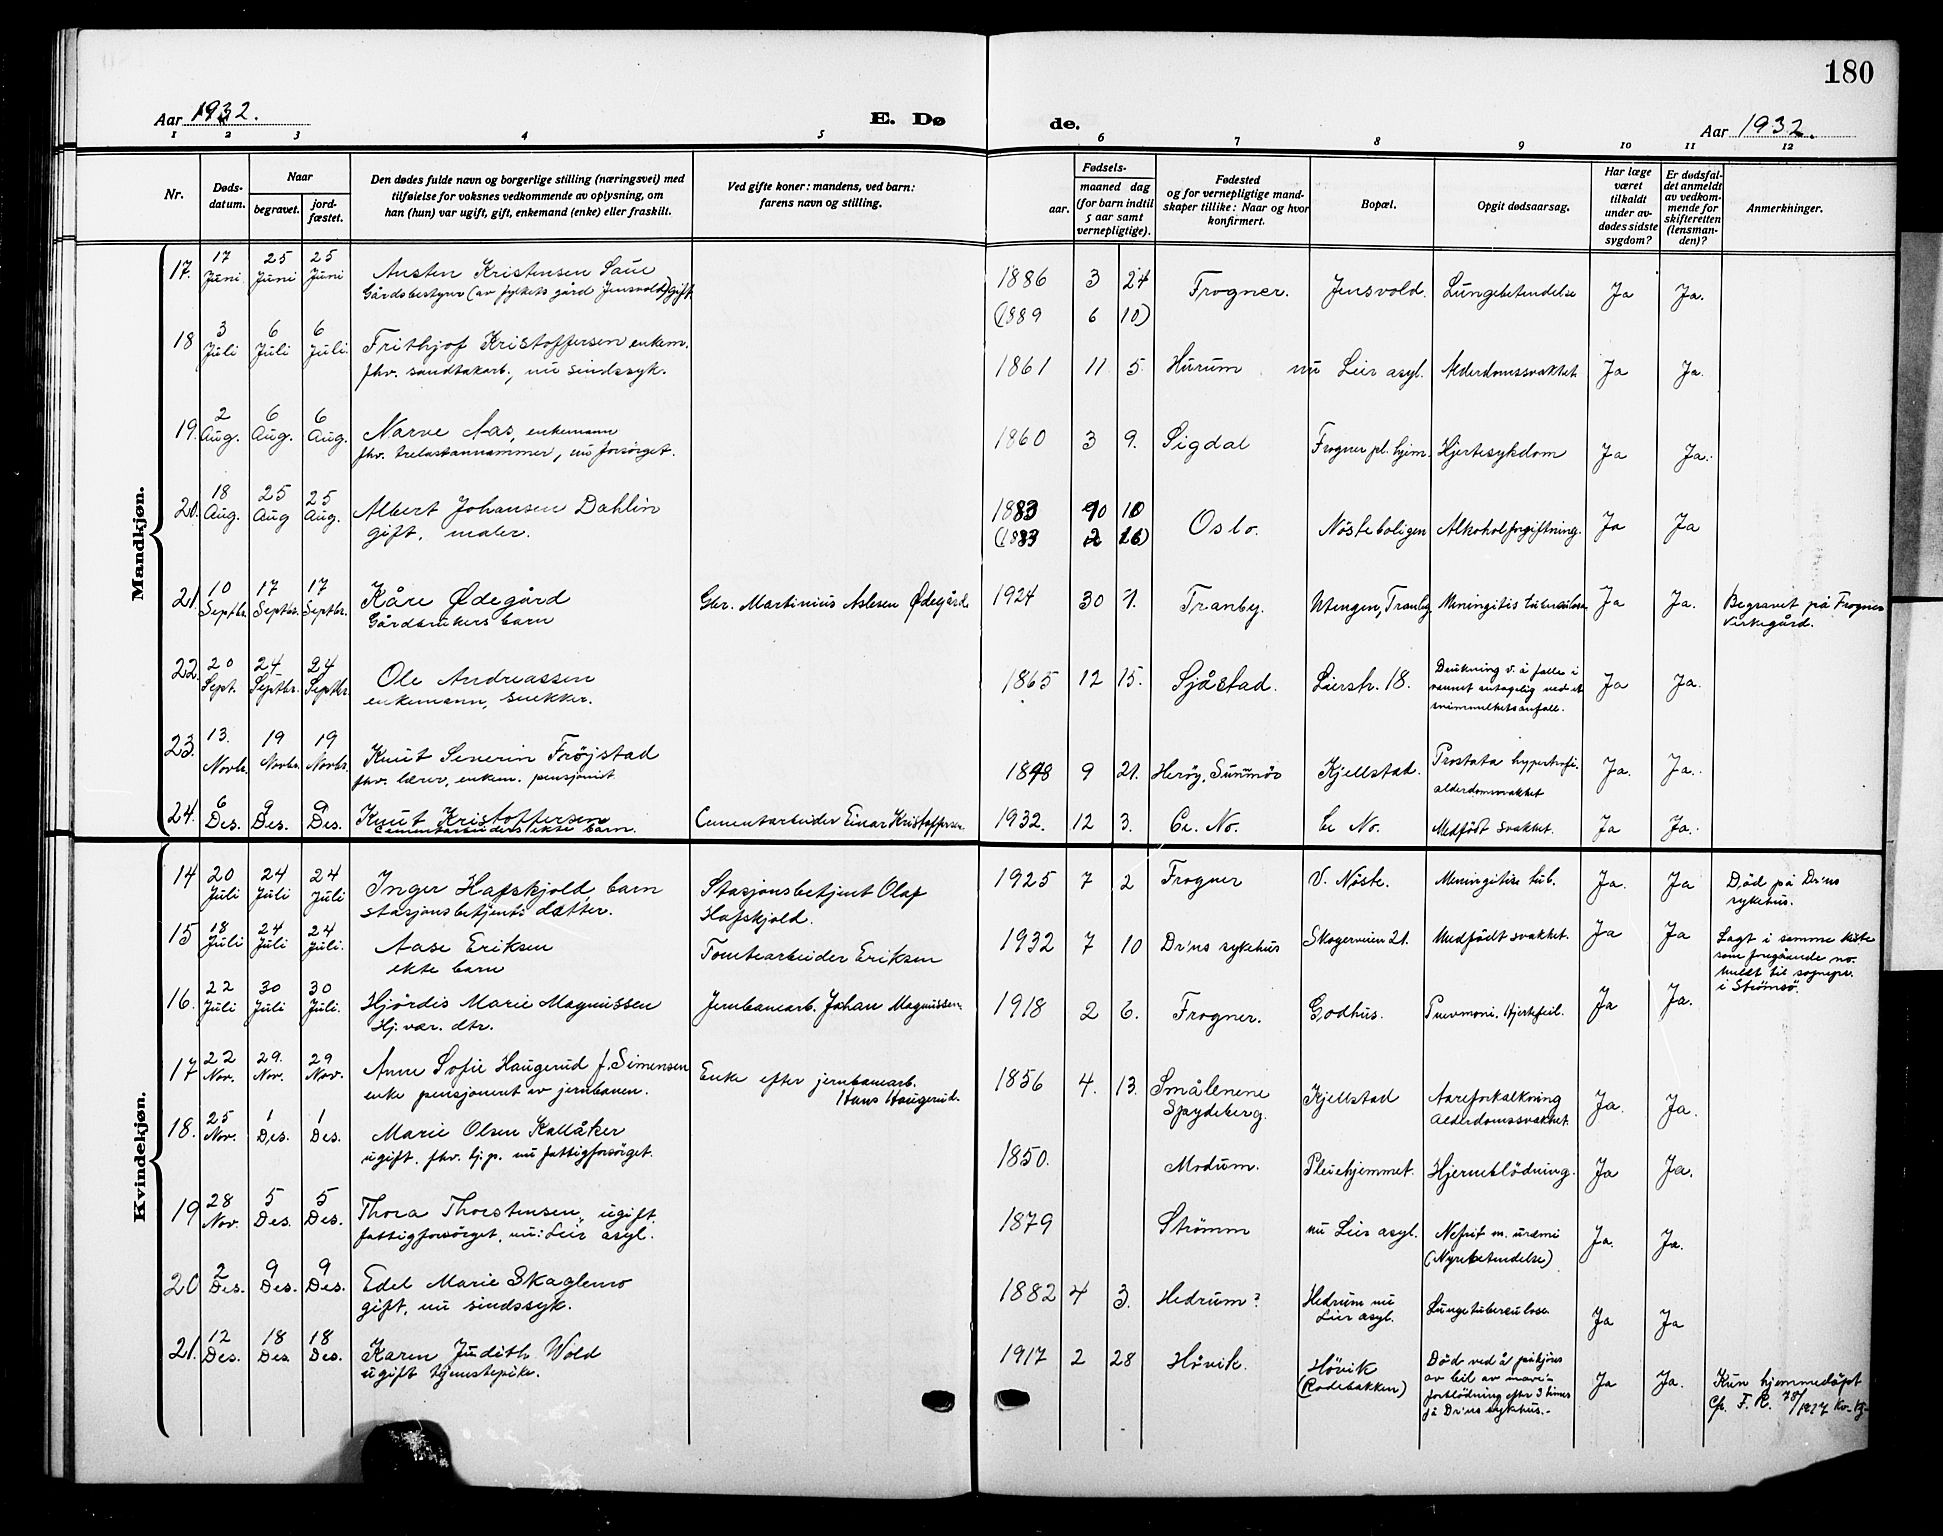 180
Aar 1932.
E. Dø
de.
Aar 1932.
1 2 3 4 5 6 7 8 9 10 11 12
Nr.
Døds-
datum.
Naar
begravet.
jord-
fæstet.
Den dødes fulde navn og borgerlige stilling (næringsvei) med
tilføielse for voksnes vedkommende av oplysning, om
han (hun) var ugift, gift, enkemand (enke) eller fraskilt.
Ved gifte koner: mandens, ved barn:
farens navn og stilling.
Fødsels-
aar.
maaned dag
(for barn indtil
5 aar samt
vernepligtige).
Fødested
og for vernepligtige mand-
skaper tillike: Naar og hvor
konfirmert.
Bopæl.
Opgit dødsaarsag.
Har læge
været
tilkaldt
under av-
dødes sidste
sygdom?
Er dødsfal-
det anmeldt
av vedkom-
mende for
skifteretten
(lensman-
den)?
Anmerkninger.
Mandkjøn.
17. 17 Juni 25 Juni 25 Juni Austen Kristensen Saue 1886 3 24 Frogner. Jensvold. Lungebetendelse Ja Ja.
Gårdsbestyrer (av fylkets gård Jensvold) gift. (1889 6 10)
18 3 Juli 6 Juli 6 Juli. Frithjof Kristoffersen enkem. 1861 11 5. Hurum nu Lier asyl. Alderdomssvakhet. Ja Ja.
fhv. sandtakarb., nu sindssyk.
19. 2 Aug. 6 Aug. 6 Aug. Narve Aas, enkemann 1860 3 9. Sigdal Frogner pl. hjem. Hjertesykdom Ja Ja.
fhv. trelastannammer, nu forsørget.
20. 18 Aug. 25 Aug 25 Aug. Albert Johansen Dahlin 1883 10 10 Oslo. Nösteboligen Alkoholforgiftning. Ja Ja
gift, maler. (1883 2 16)
21. 10 Septbr. 17 Septbr. 17 Septbr. Kåre Ødegård Gbr. Martinius Aslesen Ødegård 1924 30 7. Tranby. Utengen, Tranby Meningitis tuberculosa Ja Ja. Begravet på Frogner
Gårdbrukers barn kirkegård.
22. 20 Sept. 24 Septbr. 24 Septbr. Ole Andreassen 1865 12 15. Sjåstad. Lierstr. 18. Drukning v. å falle i Ja Ja.
enkemann, snekker. vannet antagelig ved et
svimmelhetsanfall.
23. 13. Novbr. 19 Novbr. 19 Novbr. Knut Severin Frøjstad 1848 9 21. Herøy, Sunnmör Kjellstad. Prostata hypertrofi. Ja. Ja.
fhv. lærer, enkem. pensjonist alderdomssvakhet
24. 6 Des. 9 Des. 9 Des. Knut Kristoffersen Cementarbeider Einar Kristoffersen 1932. 12 3. Ce. No. Ce No. Medfödt svakhet. Ja Ja.
Cementarbeiders ekte barn.
Kvindekjøn.
14 20 Juli 24 Juli 24 Juli Inger Hafskjold, barn Stasjonsbetjent Olaf 1925 7 2 Frogner V. Nöste. Meningitis tub. Ja. Ja Död på Dr'ns
stasjonsbetjents datter. Hafskjold. sykehus.
15 18 Juli 24 Juli 24 Juli. Aase Eriksen Tomtearbeider Eriksen 1932 7 10 Dr'ns sykehus Skogerveien 21. Medfödt svakhet. Ja Ja Lagt i samme kiste
ekte barn som foregående no.
Meldt til sognepr.
i Strömsö.
16. 22 Juli 30 Juli 30 Juli. Hjördis Marie Magnussen Jernbanearb. Johan Magnussen 1918 2 6. Frogner. Godhus. Pnevmoni. Hjertefeil. Ja Ja.
Hj. vær. dtr.
17 22 Nov. 29. Nov. 29 Nov. Anne Sofie Haugerud f. Simensen Enke efter jernbanearb. 1856 4. 13. Smålenene Kjellstad Aareforkalkning Ja. Ja.
enke pensjonert av jernbanen. Hans Haugerud. Spydeberg. Alderdomssvakhet.
18. 25 Nov. 1 Des. 1 Des. Marie Olsen Kallåker 1850. Modum. Pleiehjemmet. Hjerneblödning. Ja Ja.
ugift. fhv. tj.p. nu fattigforsörget.
19 28 Nov. 5 Des. 5 Des. Thora Thorstensen, ugift. 1879 Strömm nu Lier asyl. Nefrit m. uræmi Ja. Ja.
fattigforsörget, nu: Lier asyl. (Nyrebetendelse)
20 2 Des. 9 Des. 9 Des. Edel Marie Skaglemo 1882 4 3. Hedrum? Hedrum nu Lungetuberculose Ja Ja
gift, nu sindssyk. Lier asyl.
21. 12 Des. 18 Des. 18 Des. Karen Judith Wold 1917 2 28 Hövik. Hövik Död ved å påkjöres Ja Ja. Kun hjemmedöpt
ugift tjenestepike. (Rodebakken) av bil av mave- Cfr. F. R. 78/1917 Kv. kj.
forblödning efter 3 timer
på Dr'ns sykehus.